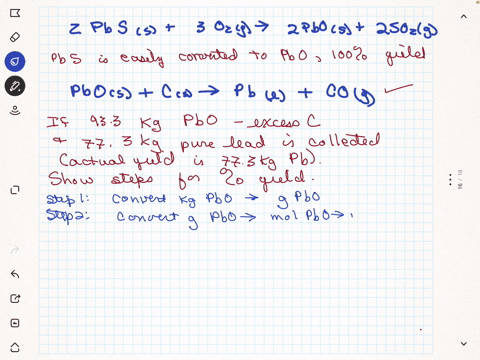 2 PbS(s) + 3 O2(g) → 2PbO(s) + 2SO2(g)
PbS is easily converted to PbO, 100% yield
PbO(s) + C(s) → Pb(l) + CO(g)
If 93.3 Kg PbO - excess C
& 77.3 kg pure lead is collected
(actual yield is 77.3 kg Pb).
Show steps for % yield.
Step 1: convert kg PbO → g PbO
Step 2: convert g PbO → mol PbO →